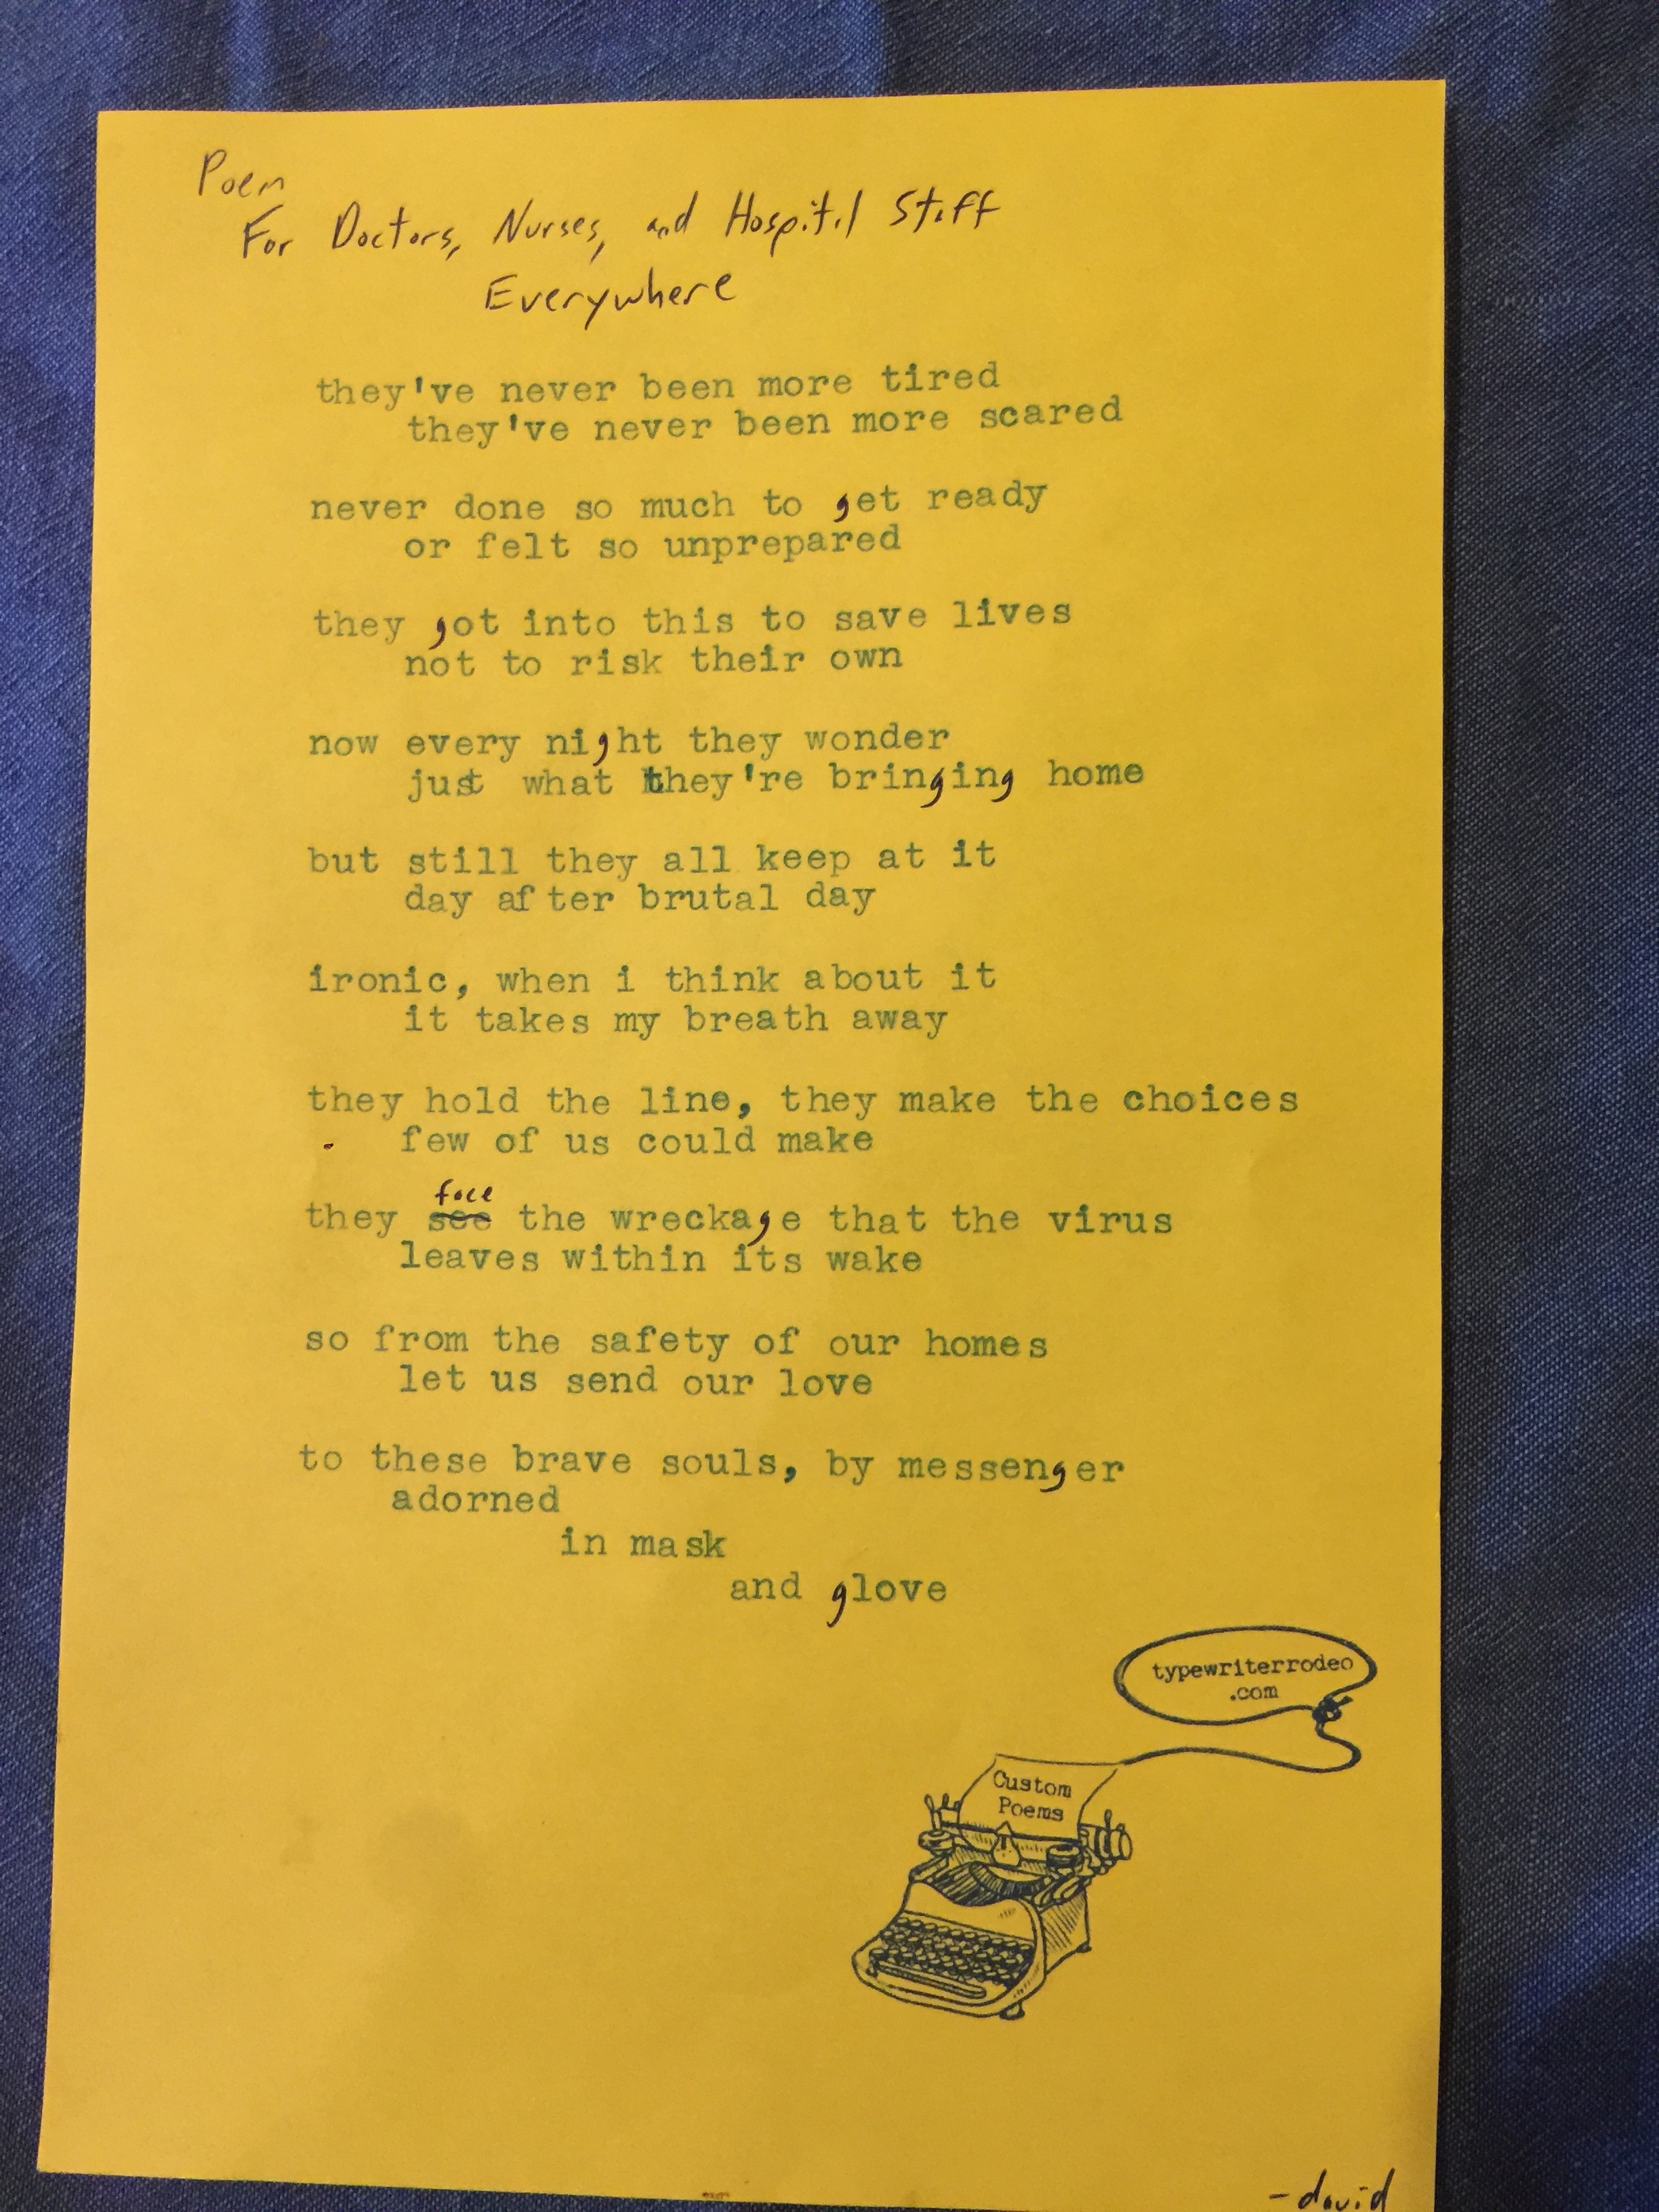 Poem
For Doctors, Nurses, and Hospital Staff
Everywhere
they've never been more tired
they've never been more scared
never done so much to get ready
or felt so unprepared
they got into this to save lives
not to risk their own
now every night they wonder
just what they're bringing home
but still they all keep at it
day after brutal day
ironic, when i think about it
it takes my breath away
they hold the line, they make the choices
few of us could make
face
they see the wreckage that the virus
leaves within its wake
so from the safety of our homes
let us send our love
to these brave souls, by messenger
adorned
in mask
and glove
typewriterrodeo
.com
Custom
Poems
-david